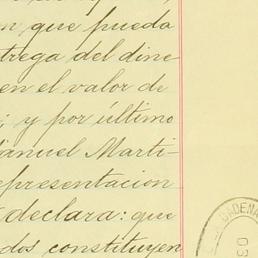 que pueda
trega del dine
en el valor de
; y por último
anuel Marti-
epresentacion
declara: que
dos constituyen